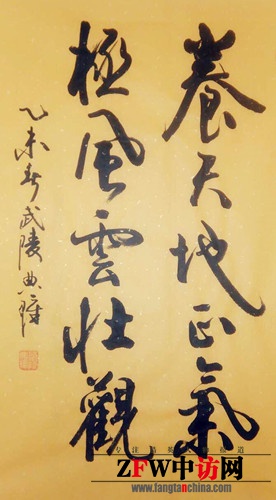 養天地正氣
極風雲壯觀
乙未春武陵典璋
ZFW中访网
www.fangtanchina.com